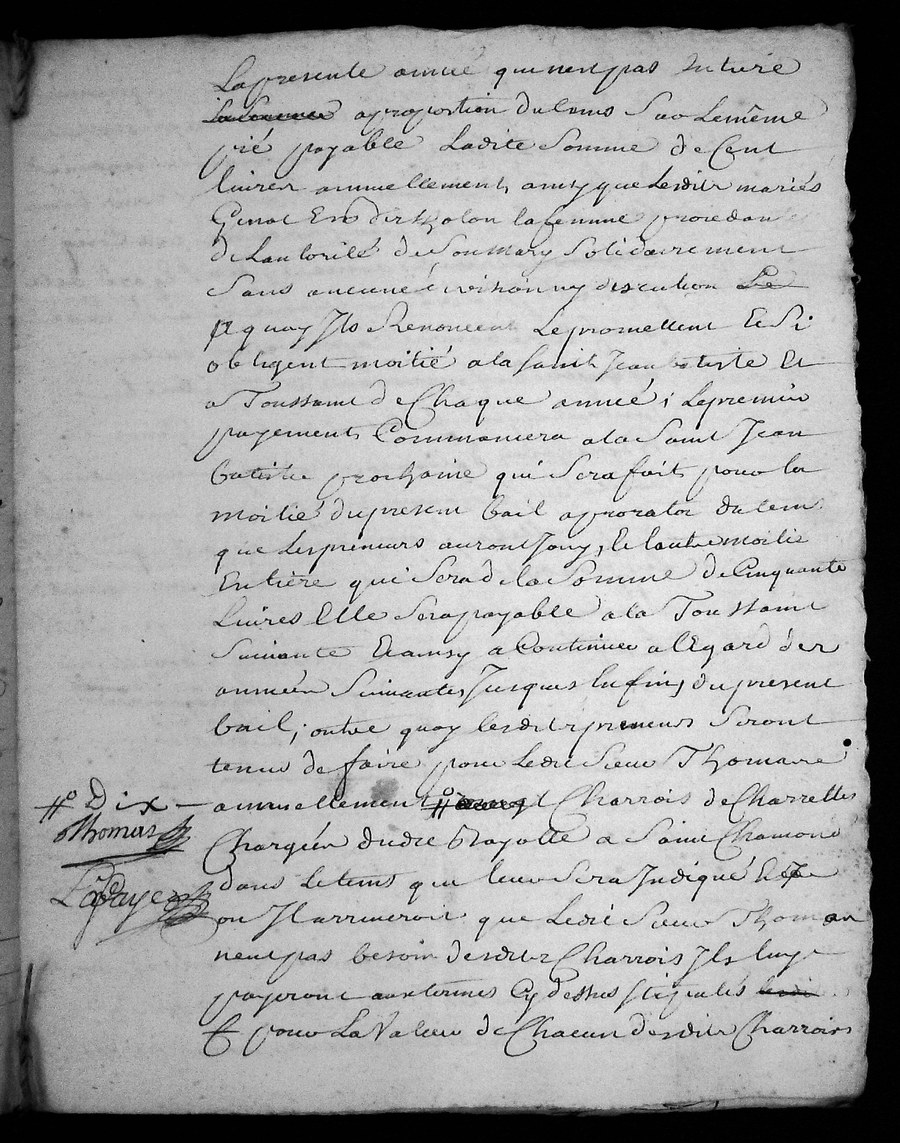 La presente année qui nest pas entiere
a proportion du tems Sur Le même
prié payable Ladite Somme de Cent
livres annuellement, ainsy que Lesdits mariés
Genot Et la femme procedante
de Lautorité de Son mary Solidairement
Sans aucune division ny discution
A quoy Ils Renoncent Le promettent Et Si
obligent moitié a la Saint Jean batiste Et
a Toussaint de Chaque année; Le premier
payement Commancera a la Saint Jean
batiste prochaine qui Sera fait pour la
moitié du present bail a prorata du tems
que Les preneurs auront Jouy, Et lautre moitié
Entière qui Sera de la Somme de Cinquante
Livres Elle Sera payable a la Toussaint
Suivante Et ainsy a Continuer a lEgard des
années Suivantes Jusques la fin, du present
bail; outre quoy lesdits preneurs Seront
tenus de faire pour Ledit Sieur Thomaze
#° Dix — annuellement #° Charrois de Charrettes
Thomas
Chargées dudit a Saint Chamond
Lafaye
dans Le tems qui leur Sera Indiqué Et
ou Il arriveroit que Ledit Sieur Thomas
neut pas besoin desdits Charrois Ils luy
payeront aux termes Cy dessus stipulés
& pour La Valeur de Chacun desdits Charrois